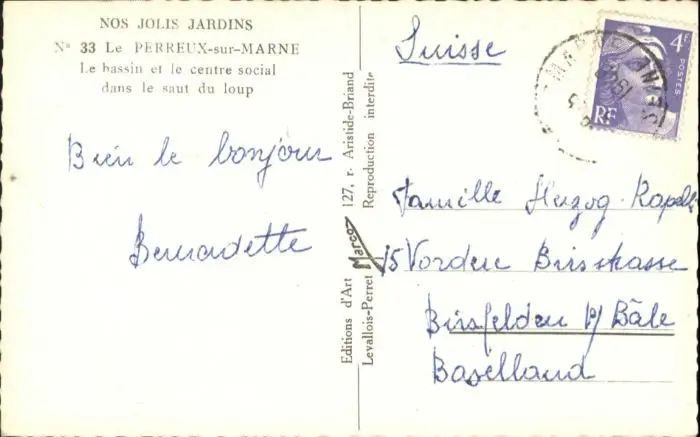 NOS JOLIS JARDINS
N° 33 Le PERREUX-sur-MARNE
Le bassin et le centre social
dans le saut du loup
Bien le bonjour
Bernadette
Editions d'Art Marco 127, r. Aristide-Briand
Levallois-Perret Reproduction interdite
Suisse
4F
POSTES
RF
Famille Herzog-Kapell
15 Vordere Birsstrasse
Birsfelden p/ Bâle
Baselland